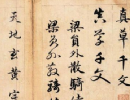 真草千文
真草千文
梁員外散騎
梁員外散騎
天地玄黃宇